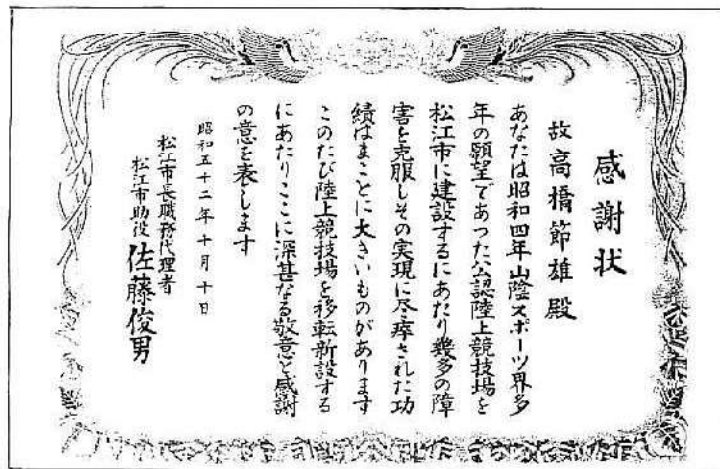 感謝状
故高橋節雄殿
あなたは昭和四年山陰スポーツ界多
年の願望であつた公認陸上競技場を
松江市に建設するにあたり幾多の障
害を克服しその実現に尽瘁された功
績はまことに大きいものがあります
このたび陸上競技場を移転新設する
にあたりここに深甚なる敬意と感謝
の意を表します
昭和五十二年十月十日
松江市長職務代理者
松江市助役 佐藤俊男